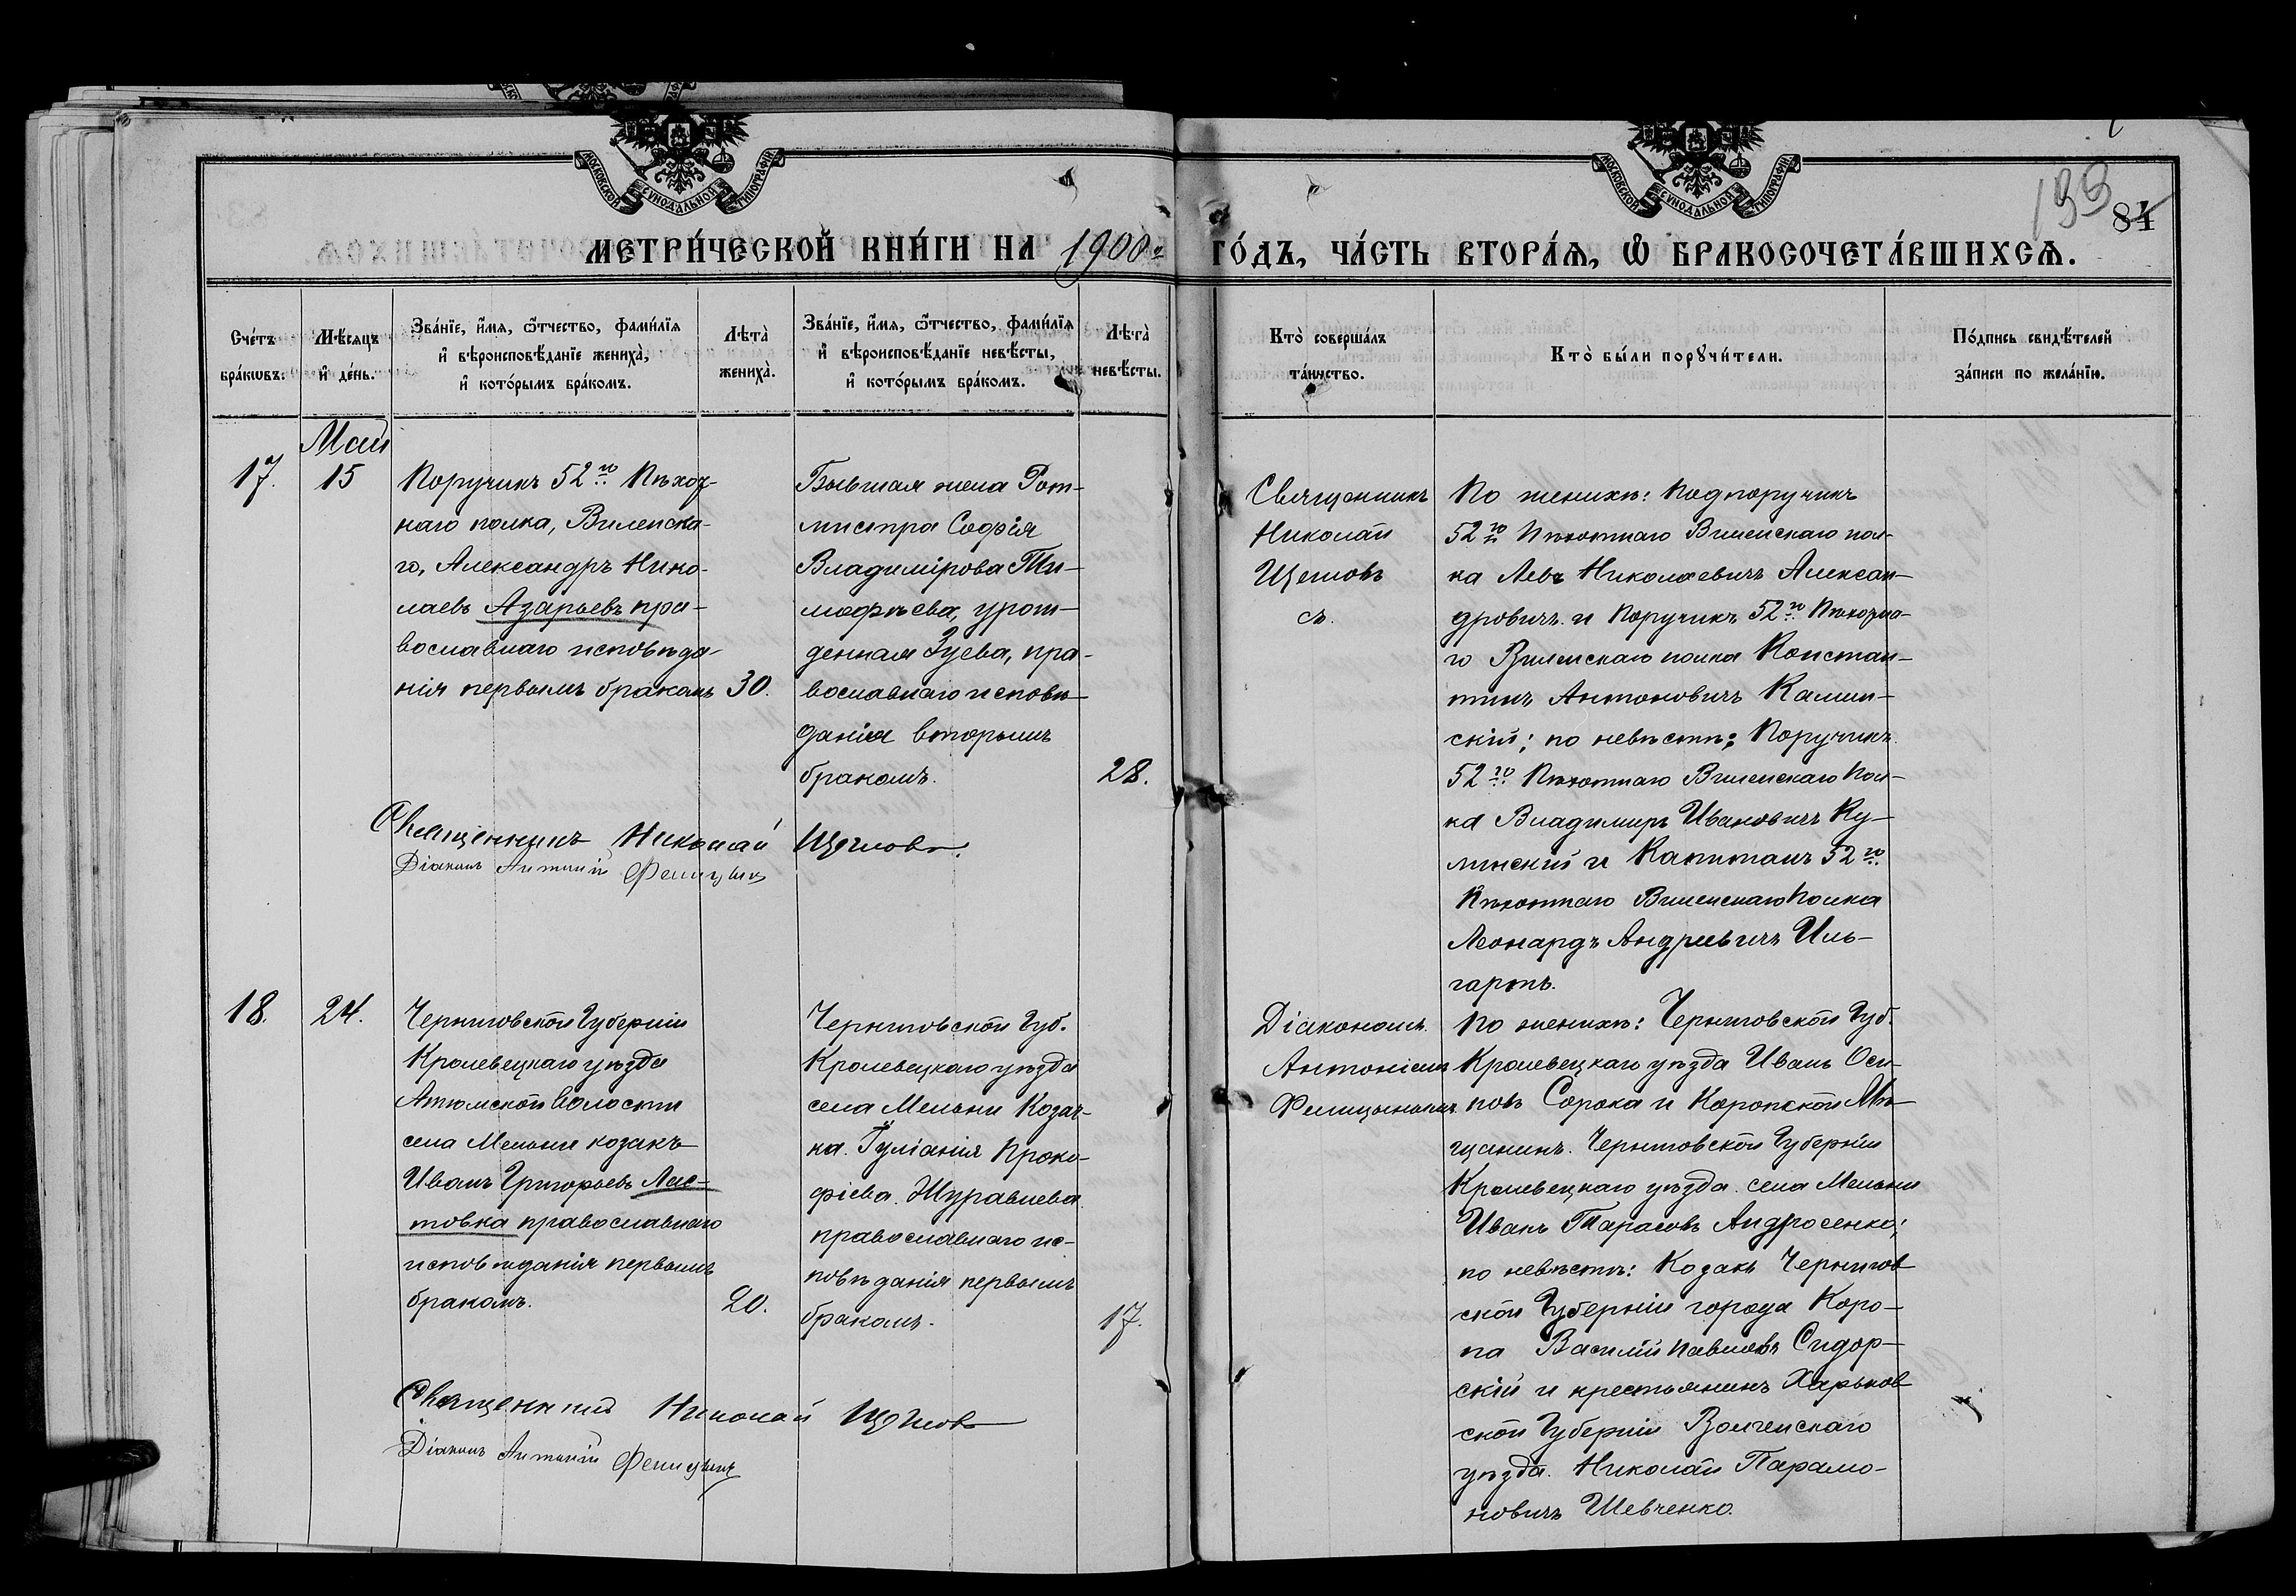 МОСКОВСКОЙ СѴНОДАЛЬНОЙ ТИПОГРАФІИ
МОСКОВСКОЙ СѴНОДАЛЬНОЙ ТИПОГРАФІИ
84
МЕТРИ́ЧЕСКОЙ КНИ́ГИ НА 1900й ГО́ДЪ, ЧА́СТЬ ВТОРА́Ѧ, Ѽ БРАКОСОЧЕТА́ВШИХСѦ.
Сче́тъ бра́кѡвъ:
Мѣ́сяцъ и҆ де́нь.
Зва́нїе, и҆́мѧ, ѻ҆́тчество, фами́лїѧ
и҆ вѣроисповѣ́данїе жениха̀,
и҆ кото́рымъ бра́комъ.
Лѣта̀ жениха̀.
Зва́нїе, и҆́мѧ, ѻ҆́тчество, фами́лїѧ
и҆ вѣроисповѣ́данїе невѣ́сты,
и҆ кото́рымъ бра́комъ.
Лѣта̀ невѣ́сты.
Кто̀ соверша́лъ
та́инство.
Кто̀ бы́ли порꙋчи́тели.
По́дпись свидѣ́телей
за́писи по жела́нїю.
Май
17. 15
Поручикъ 52го Пѣхот-
наго полка, Виленска-
го, Александръ Нико-
лаевъ Азарьевъ пра-
вославнаго исповѣда-
нія первымъ бракомъ 30.
Бывшая жена Рот-
мистра Софія
Владимірова Ти-
мофѣева, урож-
денная Зуева, пра-
вославнаго исповѣ-
данія вторымъ
бракомъ. 28.
Священникъ
Николай
Щегловъ
съ.
По женихѣ: Подпоручикъ
52го Пѣхотнаго Виленскаго пол-
ка Левъ Николаевичъ Алексан-
дровичъ и Поручикъ 52го Пѣхотна-
го Виленскаго полка Констан-
тинъ Антоновичъ Камин-
скій; по невѣстѣ: Поручикъ
52го Пѣхотнаго Виленскаго Пол-
ка Владимиръ Ивановичъ Ку-
линскій и Капитанъ 52го
Пѣхотнаго Виленскаго Полка
Леонардъ Андреевичъ Иль-
гартъ.
Священникъ Николай Щегловъ.
Діаконъ Антоній Фелицынъ
18. 24.
Черниговской Губерніи
Кролевецкаго уѣзда
Атюшской Волости
села Мельни козакъ
Иванъ Григорьевъ Лас-
товка православнаго
исповѣданія первымъ
бракомъ. 20.
Черниговской Губ.
Кролевецкаго уѣзда
села Мельни Козач-
ка Іуліанія Проко-
фіева Журавлева
православнаго ис-
повѣданія первымъ
бракомъ. 17.
Діакономъ
Антоніемъ
Фелицынымъ
По женихѣ: Черниговской Губ.
Кролевецкаго уѣзда Иванъ Оси-
повъ Сорока и Коропской Мѣ-
щанинъ Черниговской Губерніи
Кролевецкаго уѣзда села Мельни
Иванъ Тарасовъ Андросенко;
по невѣстѣ: Козакъ Чернигов
ской Губерніи города Коро-
па Василій Павловъ Сидор-
скій и крестьянинъ Харьков
ской Губерніи Волчанскаго
уѣзда Николай Парамо-
новичъ Шевченко.
Священникъ Николай Щегловъ
Діаконъ Антоній Фелицынъ